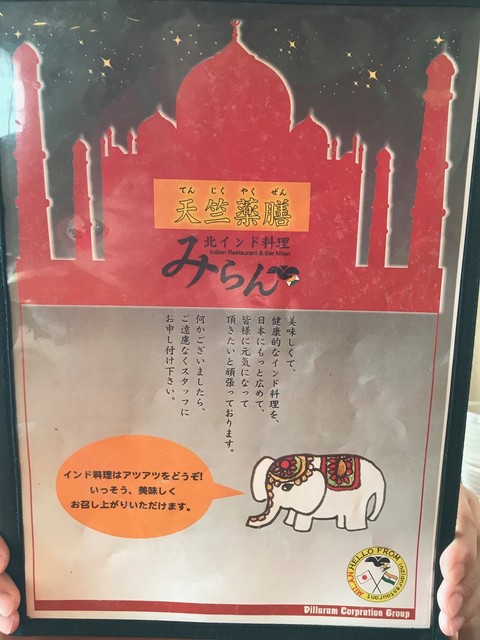 てん じく やく ぜん
天竺薬膳
北インド料理
Indian Restaurant & Bar Milan
みらん
美味しくて、
健康的なインド料理を、
日本にもっと広めて、
皆様に元気になって
頂きたいと頑張っております。
何かございましたら、
ご遠慮なくスタッフに
お申し付け下さい。
インド料理はアツアツをどうぞ!
いっそう、美味しく
お召し上がりいただけます。
HELLO FROM
indianrestaurant MILAN
Dilluram Corpration Group